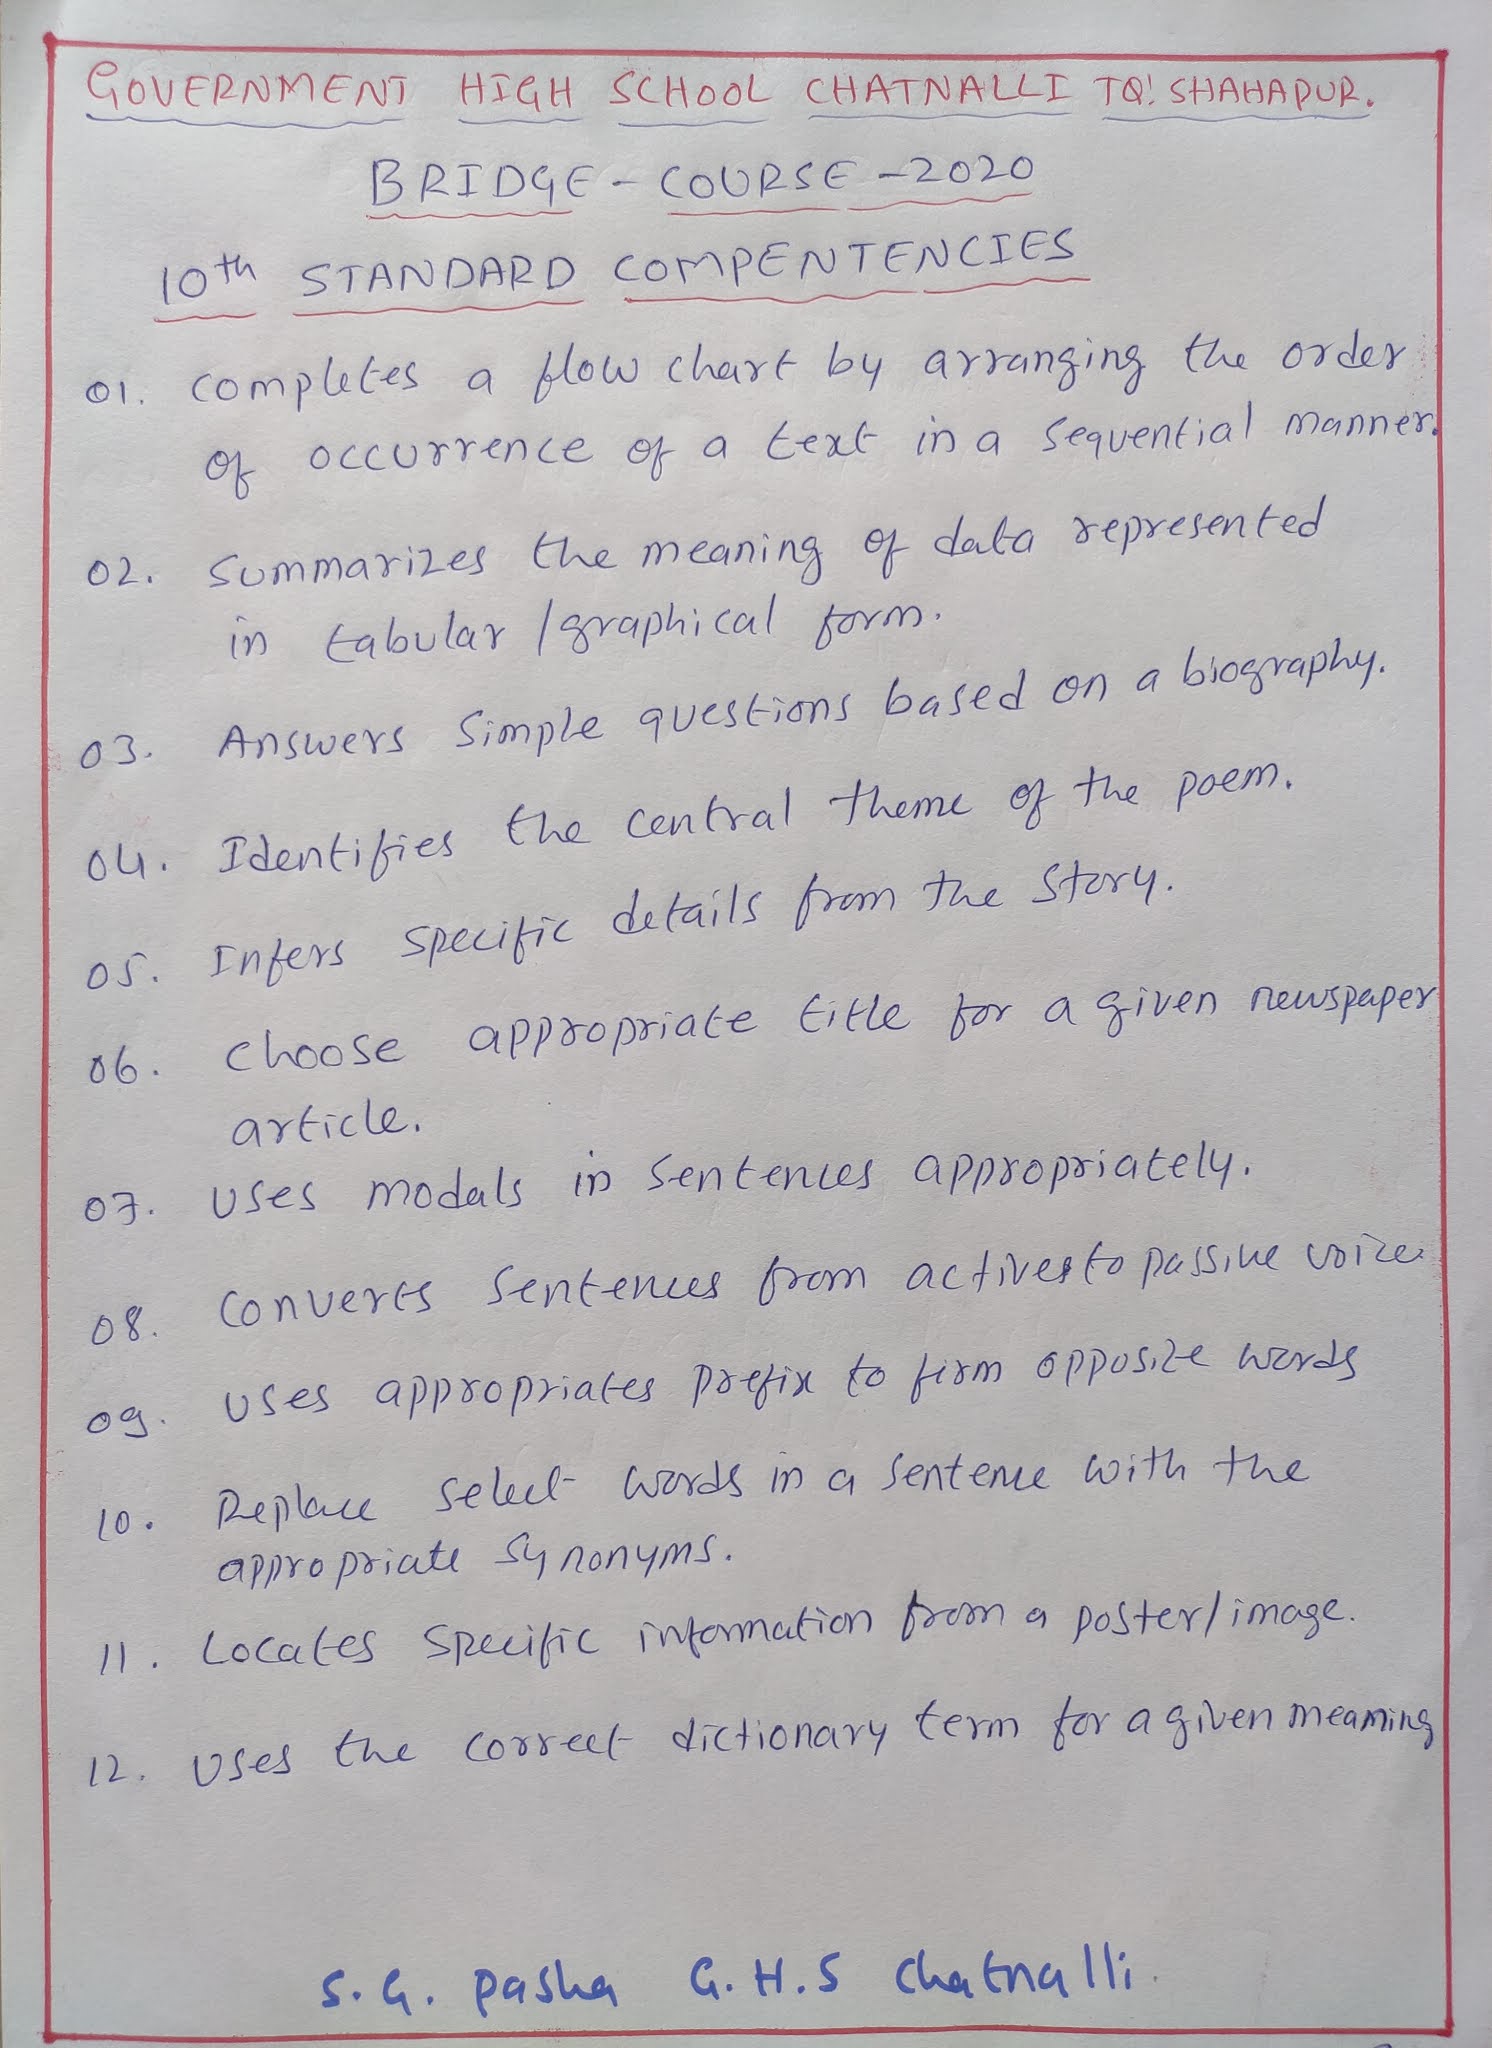 GOVERNMENT HIGH SCHOOL CHATNALLI TQ: SHAHAPUR.
BRIDGE - COURSE - 2020
10th STANDARD COMPENTENCIES
01. Completes a flow chart by arranging the order
of occurrence of a text in a sequential manner.
02. Summarizes the meaning of data represented
in tabular / graphical form.
03. Answers Simple questions based on a biography.
04. Identifies the central theme of the poem.
05. Infers specific details from the story.
06. Choose appropriate title for a given newspaper
article.
07. Uses modals in sentences appropriately.
08. Converts sentences from actives to passive voice.
09. Uses appropriates prefix to form opposite words
10. Replace select words in a sentence with the
appropriate synonyms.
11. Locates specific information from a poster/image.
12. Uses the correct dictionary term for a given meaming
S.G. Pasha G.H.S Chatnalli.